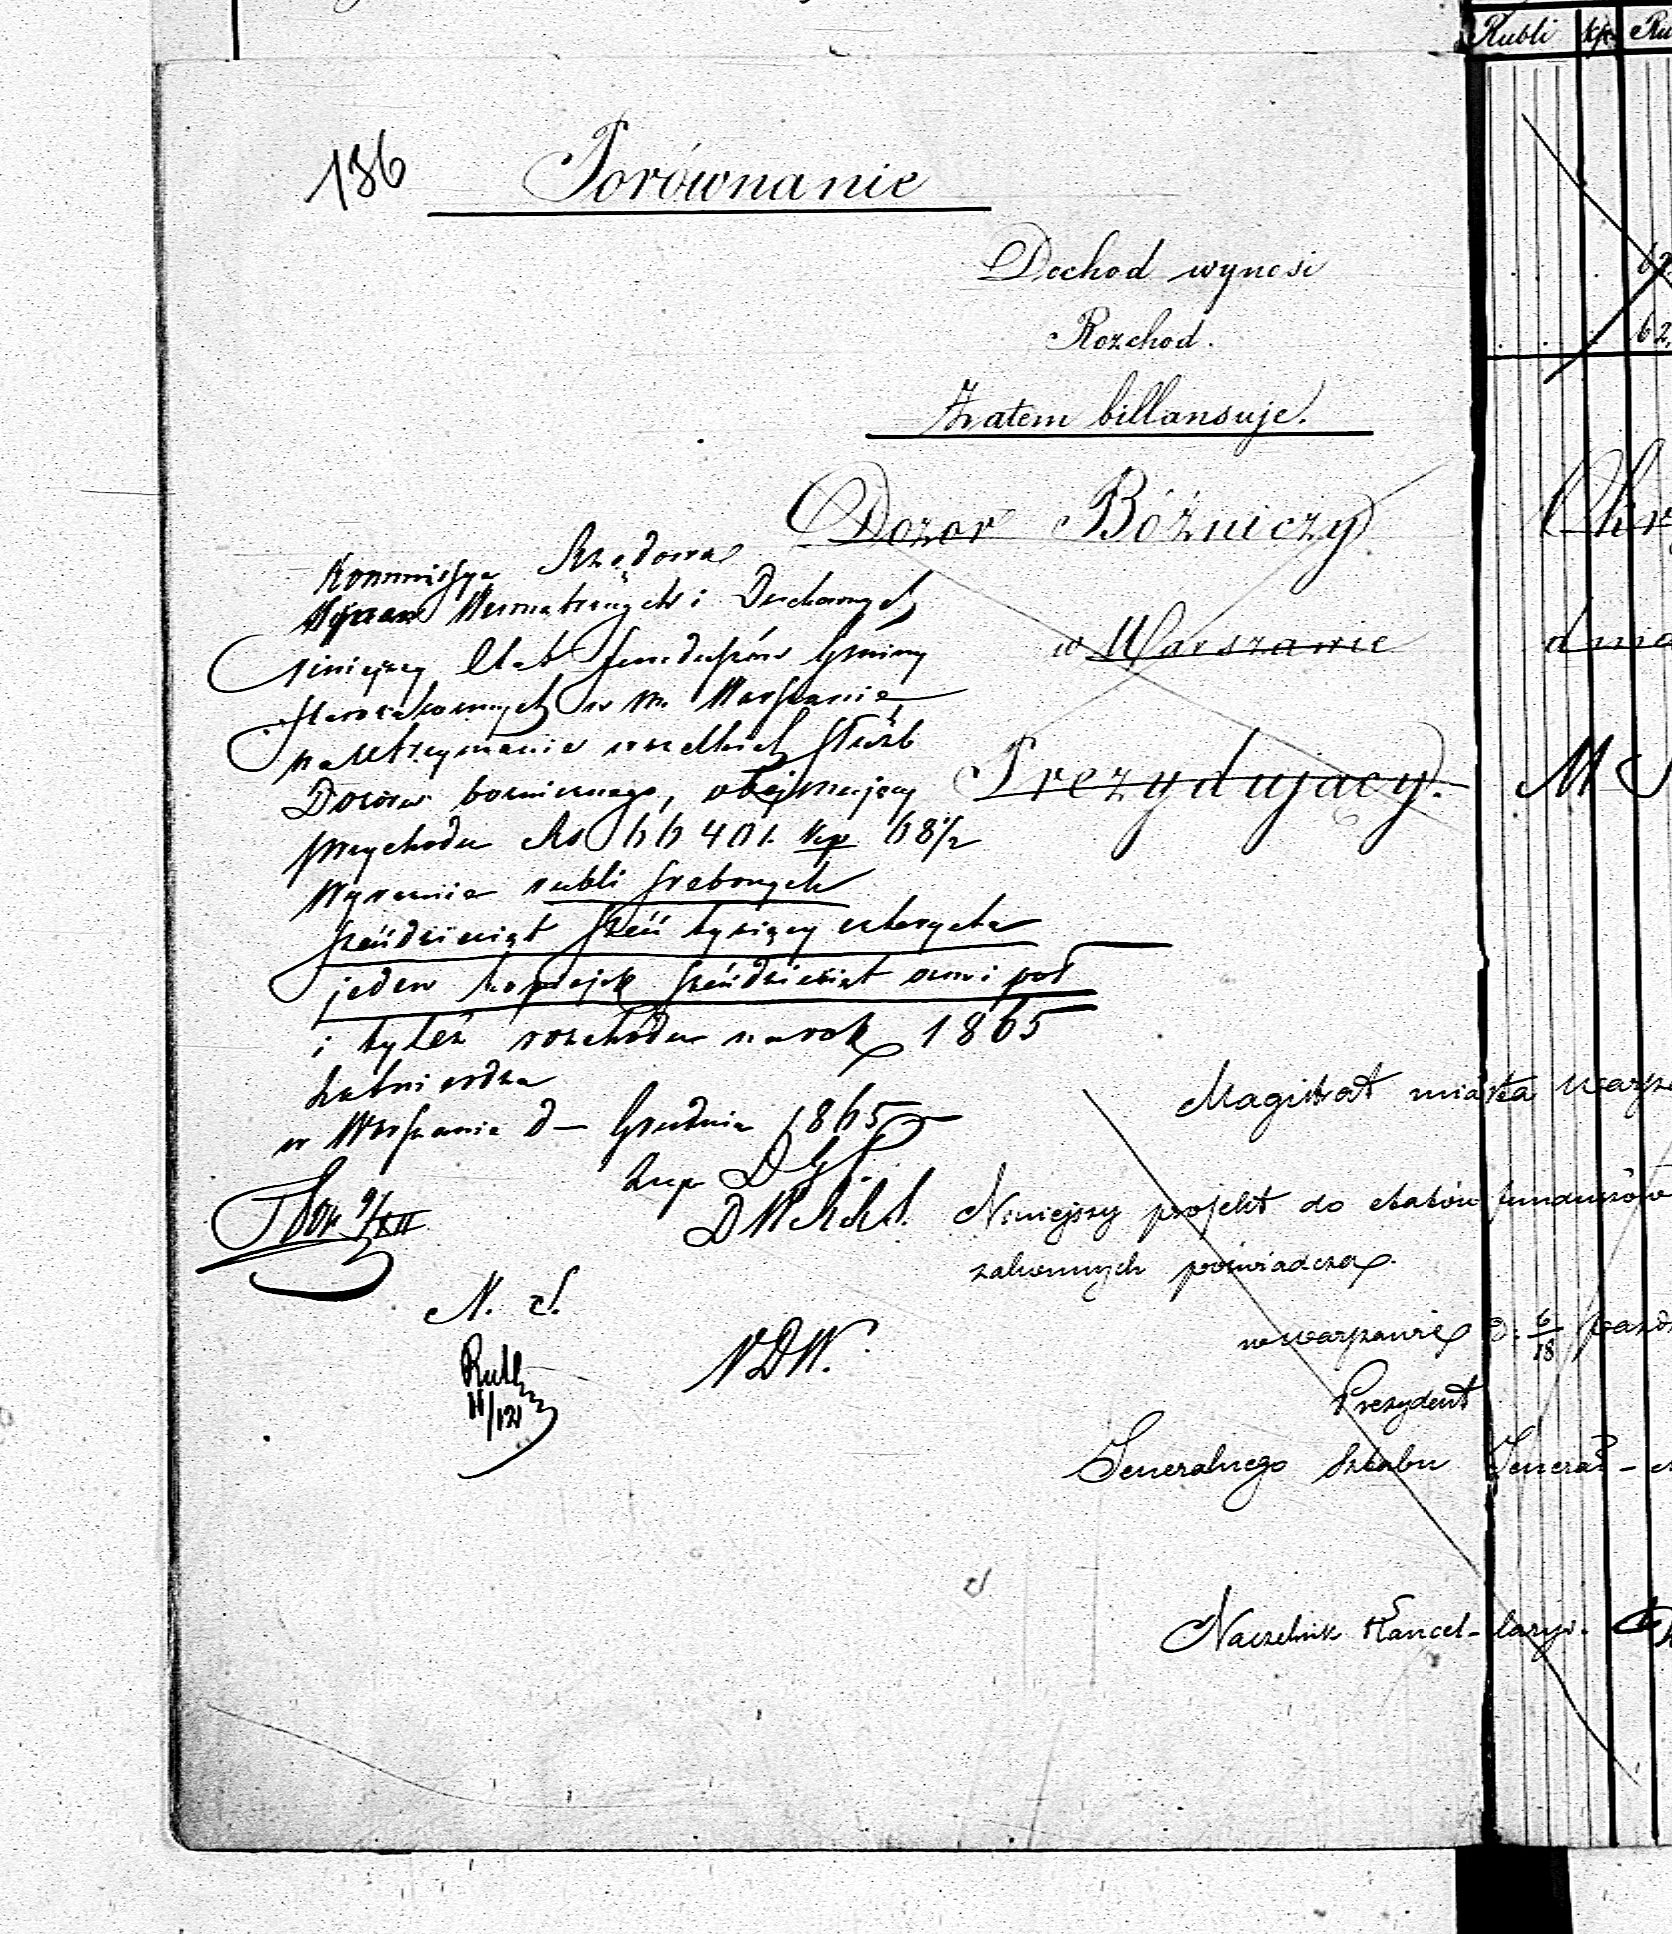 Rubli kp Ru
136
Porównanie
Dochod wynosi
Rozchod.
62
62,
Zatem billansuje.
Dozor Bóżniczy Okr
w Warszawie dnia
Prezydujący. M S
Kommissya Rządowa
Spraw Wewnętrznych i Duchownych
niniejszy Etat funduszów Gminy
Starozakonnych w m. Warszawie
na utrzymanie wszelkich służb
Dozoru bożniczego, obejmujący
przychodu Rs 66401 kp 68 1/2
Wyraznie rubli srebrnych
sześdziesiąt sześć tysięcy czterysta
jeden kopiejek sześdziesiąt osm i pół
i tyleż rozchodu na rok 1865
zatwierdza
w Warszawie d – Grudnia 1865
Magistrat miasta Warsza
Niniejszy projekt do etatów funduszów
zakonnych poświadcza.
w Warszawie d. 6/18 pazdz
Prezydent
Generalnego Sztabu Jenerał – M
Naczelnik Kancel-laryi.
D G P.
9/XII
N. S.
N D W.
11/12